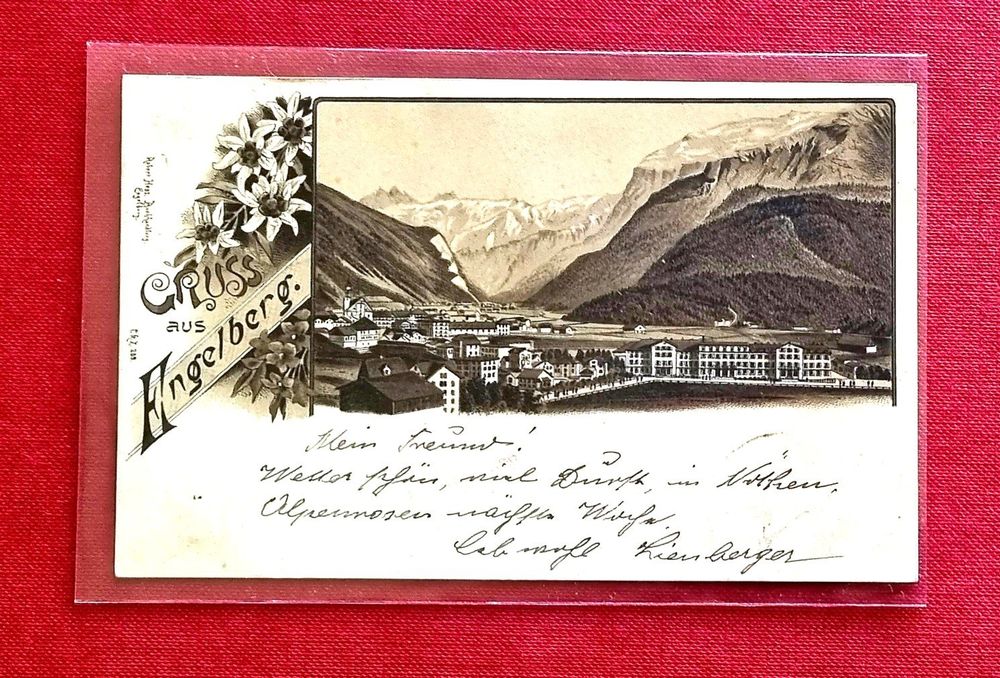 GRUSS
AUS
Engelberg.
Mein Freund!
Wetter schön, viel Durst, in Nöthen,
Alpenrosen nächste Woche.
Leb wohl Lienberger